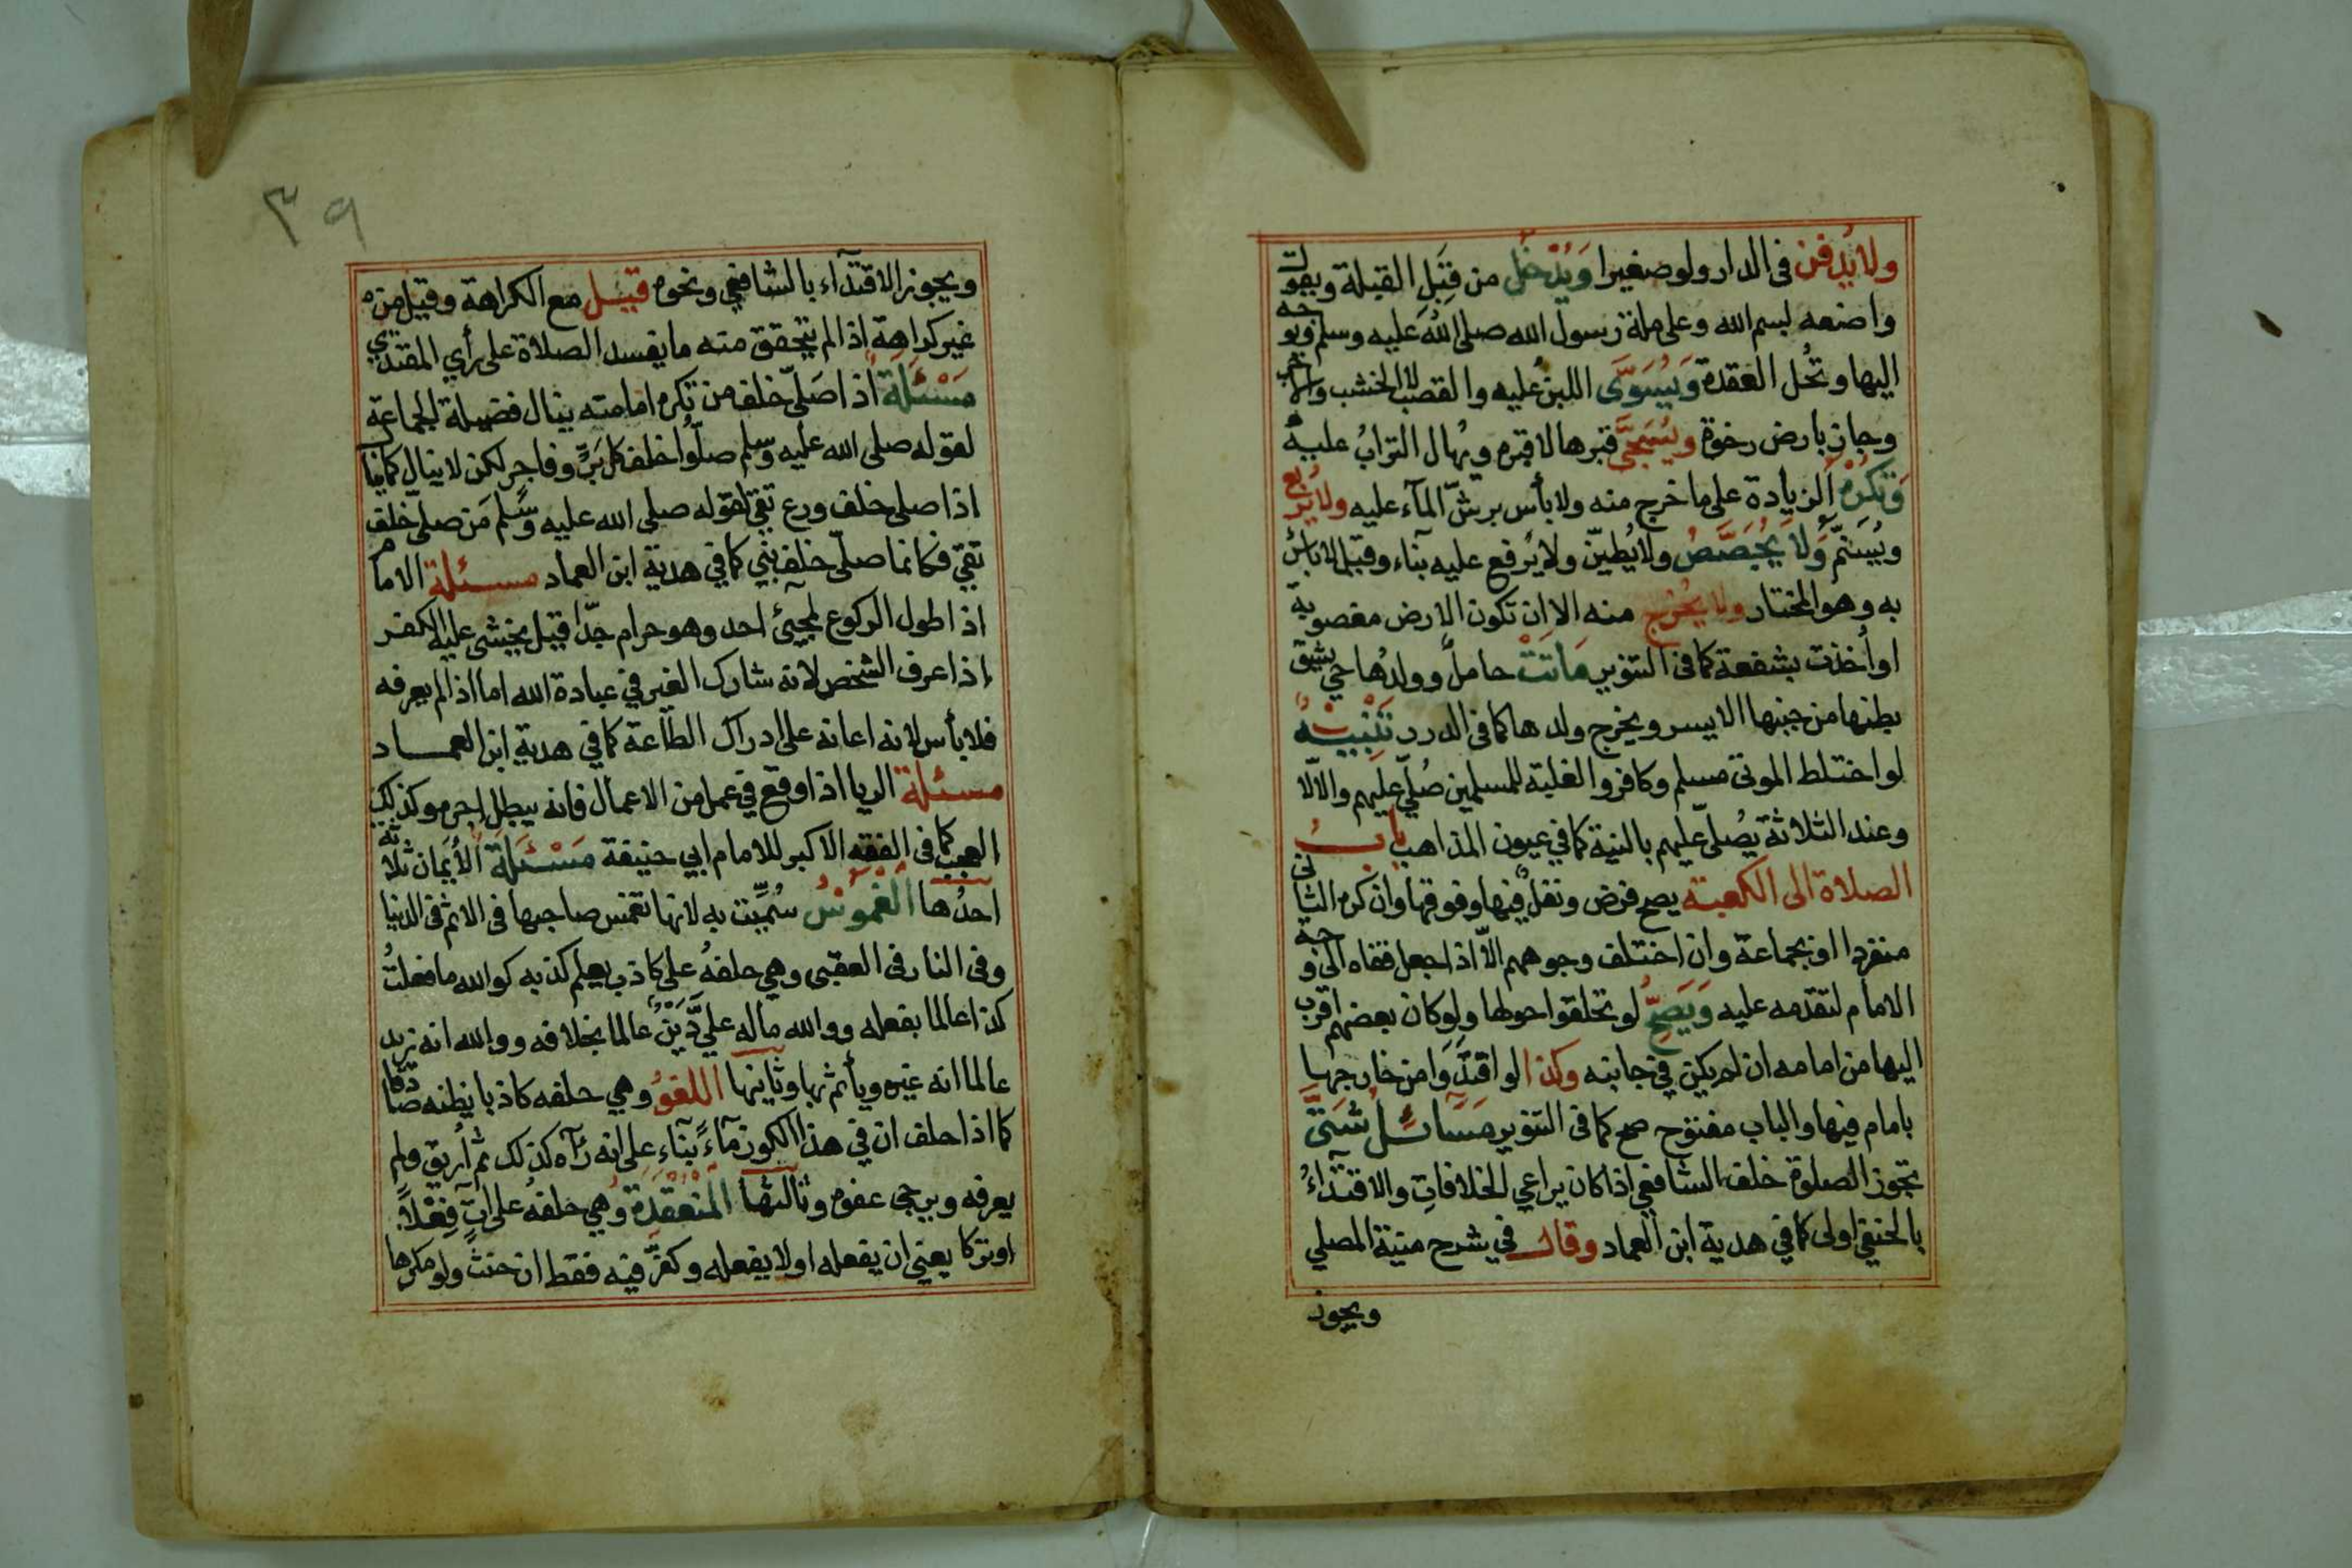 ولا يُدفن فى الدار ولو صغيرا وَيُدْخَل من قِبَلِ القبلة ويقول
واضعه بسم الله وعلى ملة رسول الله صلى الله عليه وسلم ويوجه
اليها وتُحل العقدة وَيُسَوَّى اللبن عليه والقصب لا الخشب والآجر
وجاز بارض رخوة ويُسَجَّى قبرها لا قبره ويُهال الترابُ عليهُ
وَتكرَهُ الزيادة على ما خرج منه ولا بأس برشّ المآء عليه ولا يُربع
ويُسَنَّم وَلَا يُجَصَّصُ ولا يُطيّن ولا يُرفع عليه بناء وقيل لا بأس
به وهو المختار ولا يُخرج منه الا ان تكون الارض مغصوبة
او أُخذت بشفعة كما فى التنوير مَاتَتْ حاملٌ وولدُها حي يشق
بطنها من جنبها الايسر ويخرج ولدها كما فى الدرر تَنْبِيْهٌ
لو اختلط الموتى مسلم وكافر والغلبة للمسلمين صُلّي عليهم والا لا
وعند الثلاثة يصُلّى عليهم بالنية كما في عيون المذاهب بابُ
الصلاة الى الكعبة يصح فرض ونفلٌ فيها وفوقها وان كره الثانى
منفردا او بجماعة وان اختلف وجوههم الّا اذا جعل قفاه الى وجه
الامام لتقدمه عليه وَيَصِحُّ لو تحلقوا حولها ولو كان بعضهم اقرب
اليها من امامه ان لم يكن في جانبه وكذا لو اقتدَوا من خارجها
بامام فيها والباب مفتوح صح كما فى التنوير مَسَائِلُ شَتَّى
تجوز الصلوة خلف الشافعي اذا كان يراعي الخلافاتِ والاقتدآءُ
بالحنفي اولى كما في هدية ابن العماد وقال في شرح منية المصلي
ويجوز
٣٩
ويجوز الاقتدآء بالشافعي ونحوه قيل مع الكراهة وقيل من
غير كراهة اذا لم يتحقق منه ما يفسد الصلاة على رأي المقتدي
مَسْئَلَة اذا صَلّى خلف من تكره امامته ينال فضيلة الجماعة
لقوله صلى الله عليه وسلم صلّوا خلف كل بَرٍّ وفاجر لكن لا ينال كما ينال
اذا صلى خلف ورع تقي لقوله صلى الله عليه وسَّلم مَن صلّى خلف
تقي فكانما صلّى خلف نبي كما في هدية ابن العماد مسئلة الامام
اذا طول الركوع لمجيئ احد وهو حرام جدّا قيل يخشى عليه الكفر
إذا عرف الشخص لانه شارك الغير في عبادة الله اما اذا لم يعرفه
فلا بأس لانه اعانة على ادراك الطاعة كما في هدية ابن العماد
مسئلة الريا اذا وقع في عمل من الاعمال فانه يبطل اجره وكذلك
العجب كما فى الفقه الاكبر للامام ابي حنيفة مَسْئَلَة الأَيمَان ثلاثة
احدُها الْغَمُوْسُ سُمِّيت به لانها تغمس صاحبها فى الاثم فى الدنيا
وفى النار فى العقبى وهي حلفهُ على كاذب يعلم كذبه كوالله ما فعلتُ
كذا عالما بفعله ووالله ماله عليّ دَيْنٌ عالما بخلافه ووالله انه زيد
عالما انه غيره ويأثم بها وثانيها اللغوُ وهي حلفه كاذبا يظنه صادقا
كما اذا حلف ان في هذا الكوز مآءً بنآءِ على انه رَآه كذلك ثم أريق ولم
يعرفه ويرجى عفوه وثالثها الْمُنْعَقِدَةُ وهي حلفهُ على اتٍ فِعْلاً
او تركا يعني ان يفعله اولا يفعله وكفّر فيه فقط ان حنث ولو مكرها